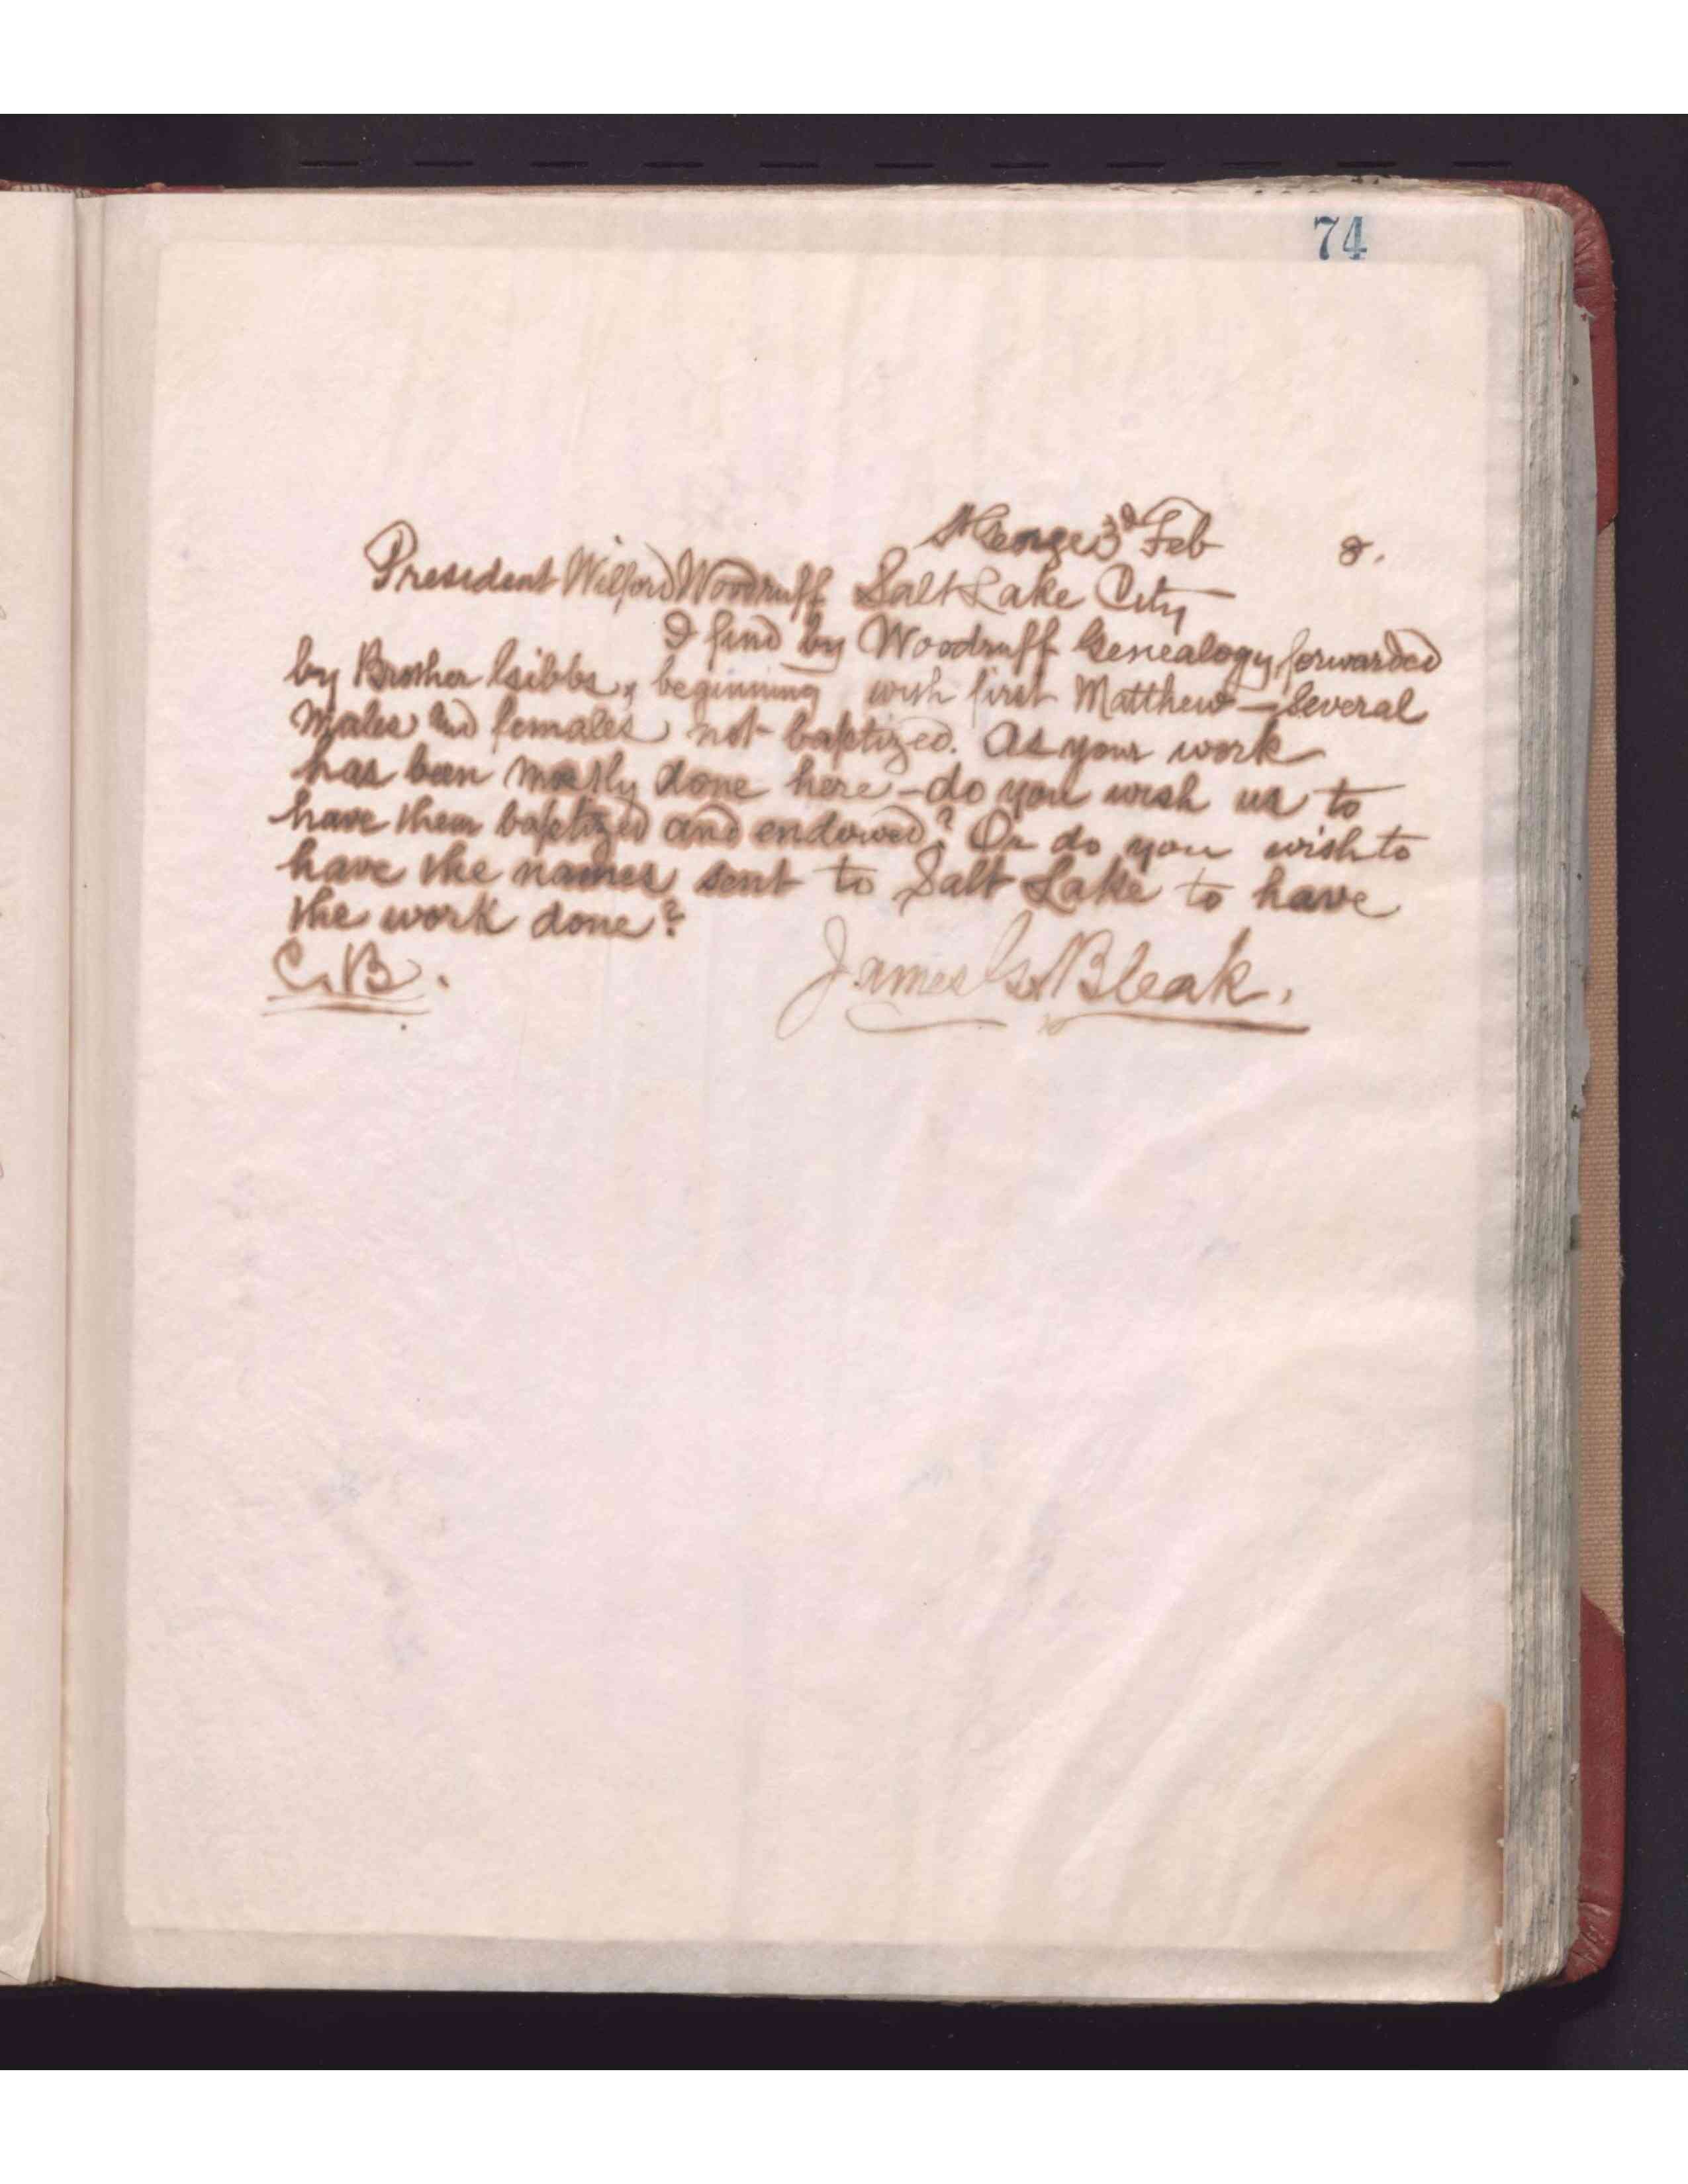 74
St George 3d Feb 8.
President Wilford Woodruff Salt Lake City
I find by Woodruff Genealogy forwarded
by Brother Gibbs, beginning with first Matthew – Several
Males and females not baptized. As your work
has been mostly done here – do you wish us to
have them baptized and endowed? Or do you wish to
have the names sent to Salt Lake to have
the work done?
C.B. James G. Bleak.